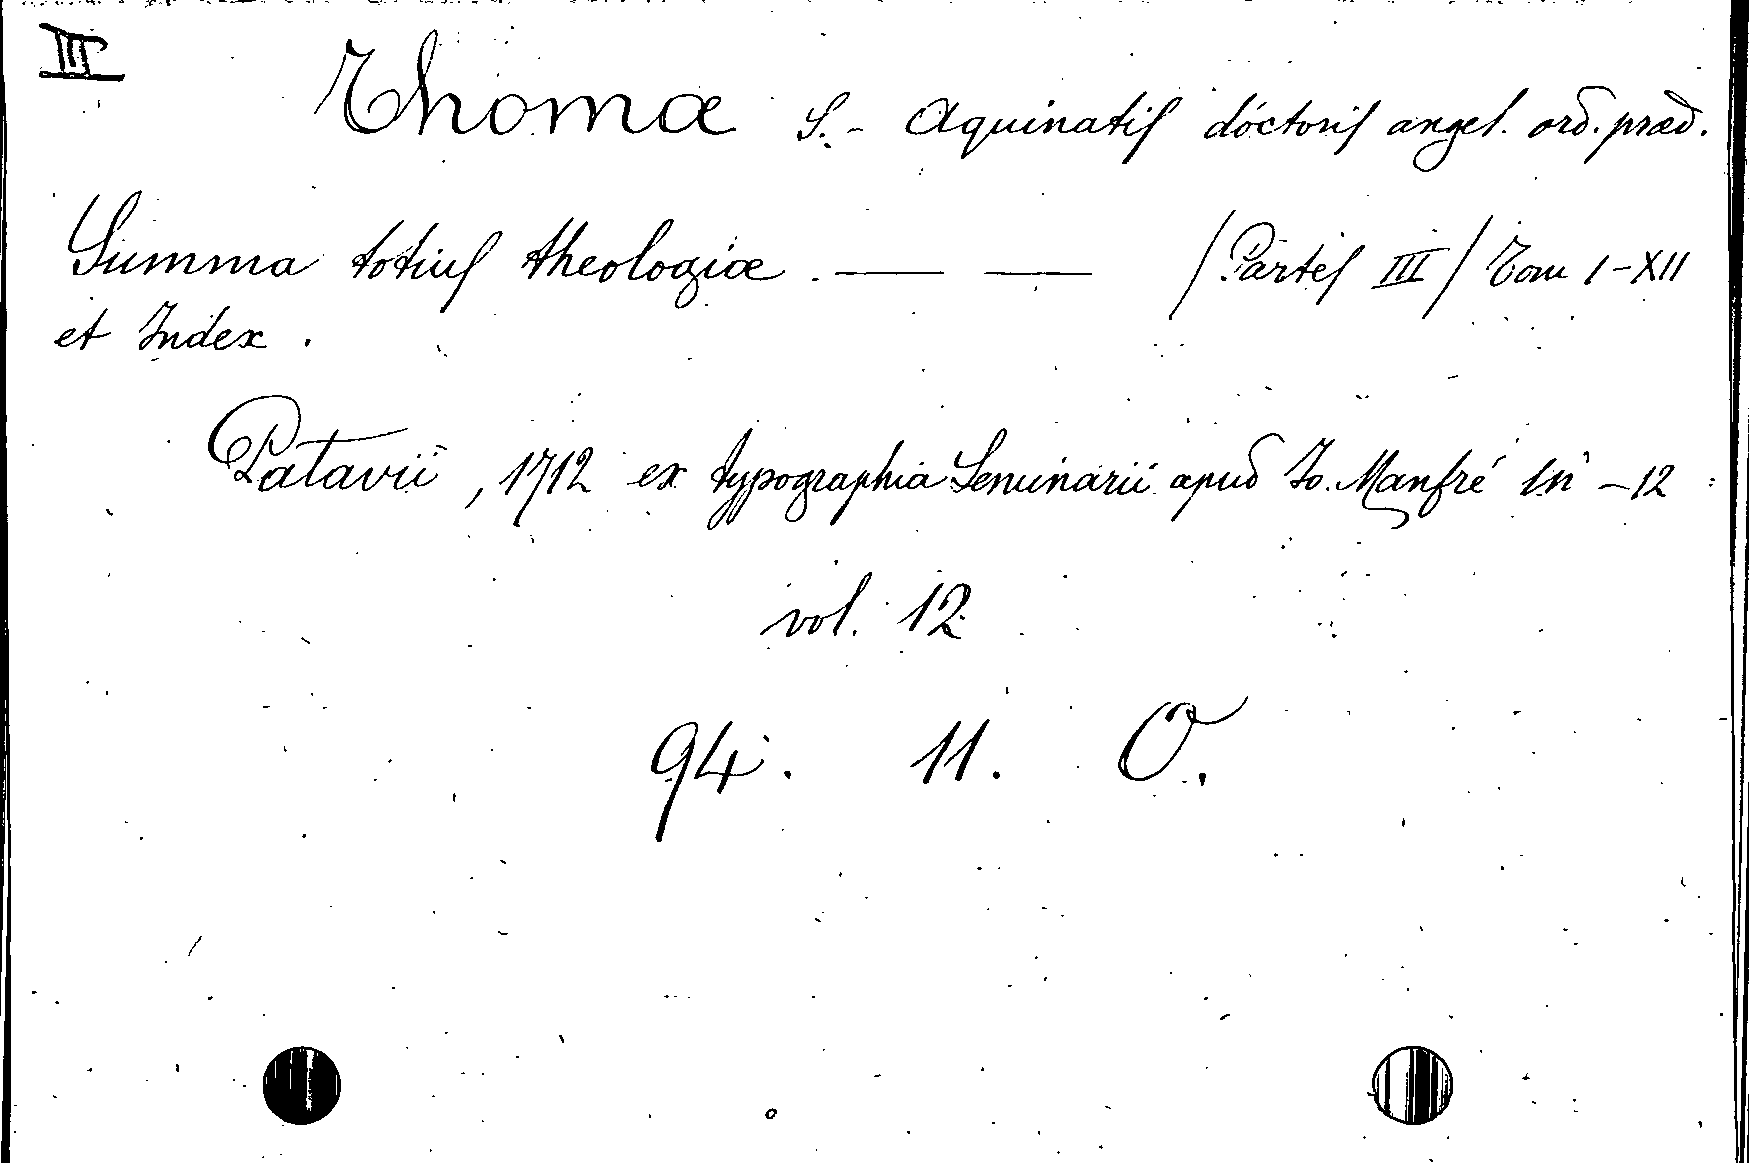 III
Thomæ S. - Aquinatis doctoris angel. ord. præd.
Summa totius theologiæ . — — / Partes III / Tom I - XII
et Index .
Patavii , 1712 ex typographia Seminarii apud Jo. Manfré in - 12
vol. 12
94. 11. O.